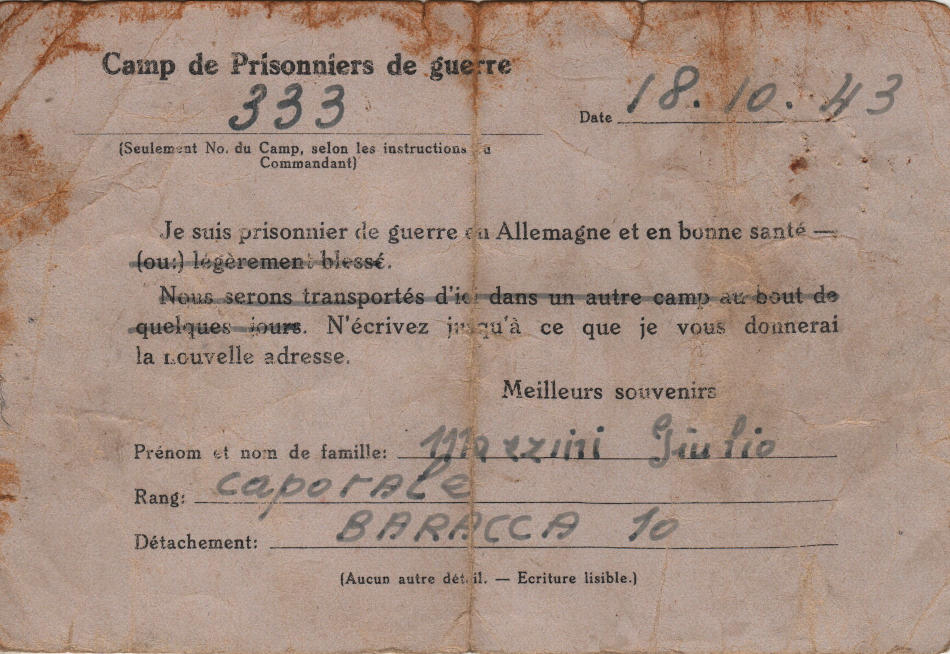 Camp de Prisonniers de guerre
333
Date 18.10.43
(Seulement No. du Camp, selon les instructions du
Commandant)
Je suis prisonnier de guerre en Allemagne et en bonne santé —
(ou:) légèrement blessé.
Nous serons transportés d'ici dans un autre camp au bout de
quelques jours. N'écrivez jusqu'à ce que je vous donnerai
la nouvelle adresse.
Meilleurs souvenirs
Prénom et nom de famille: Mazzini Giulio
Rang: caporale
Détachement: BARACCA 10
(Aucun autre détail. — Ecriture lisible.)